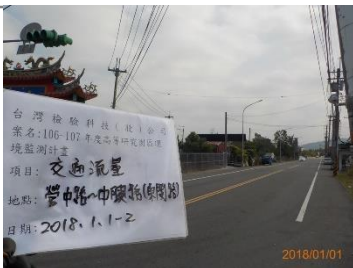 台灣檢驗科技(股)公司
案名:106-107年度高等研究園區環
境監測計畫
項目: 交通流量
地點: 營中路～中興路(東閔路)
日期: 2018.1.1-2
2018/01/01